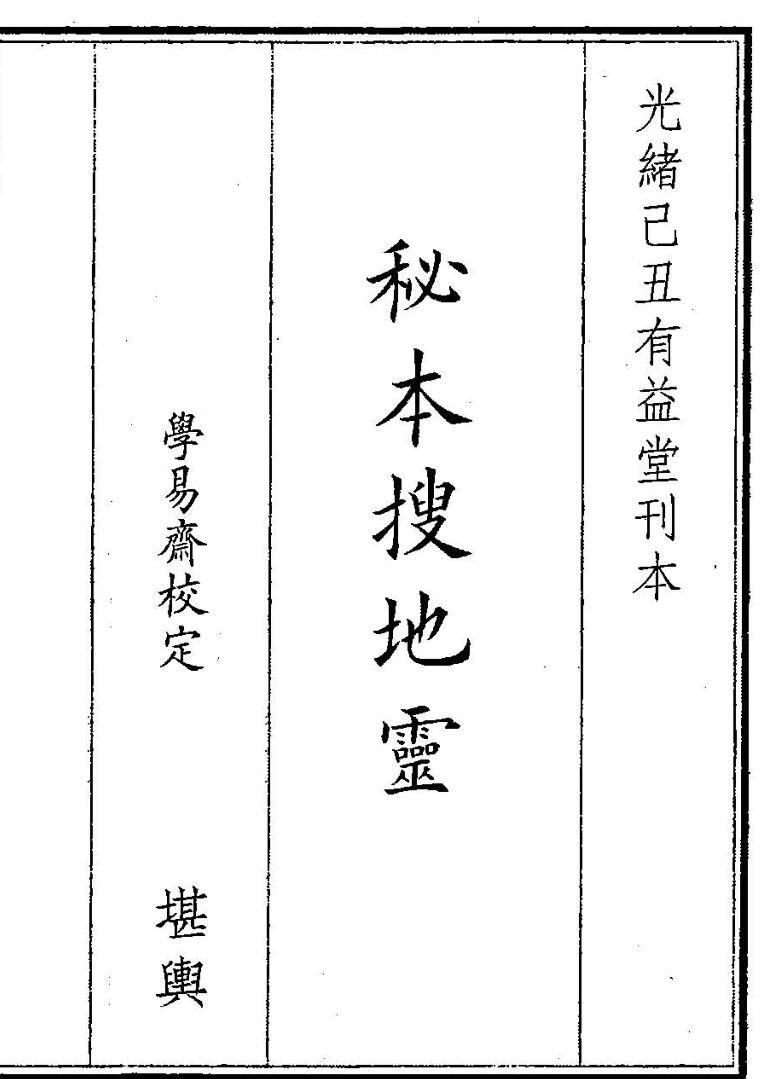 光緒己丑有益堂刊本
秘本搜地靈
學易齋校定
堪輿